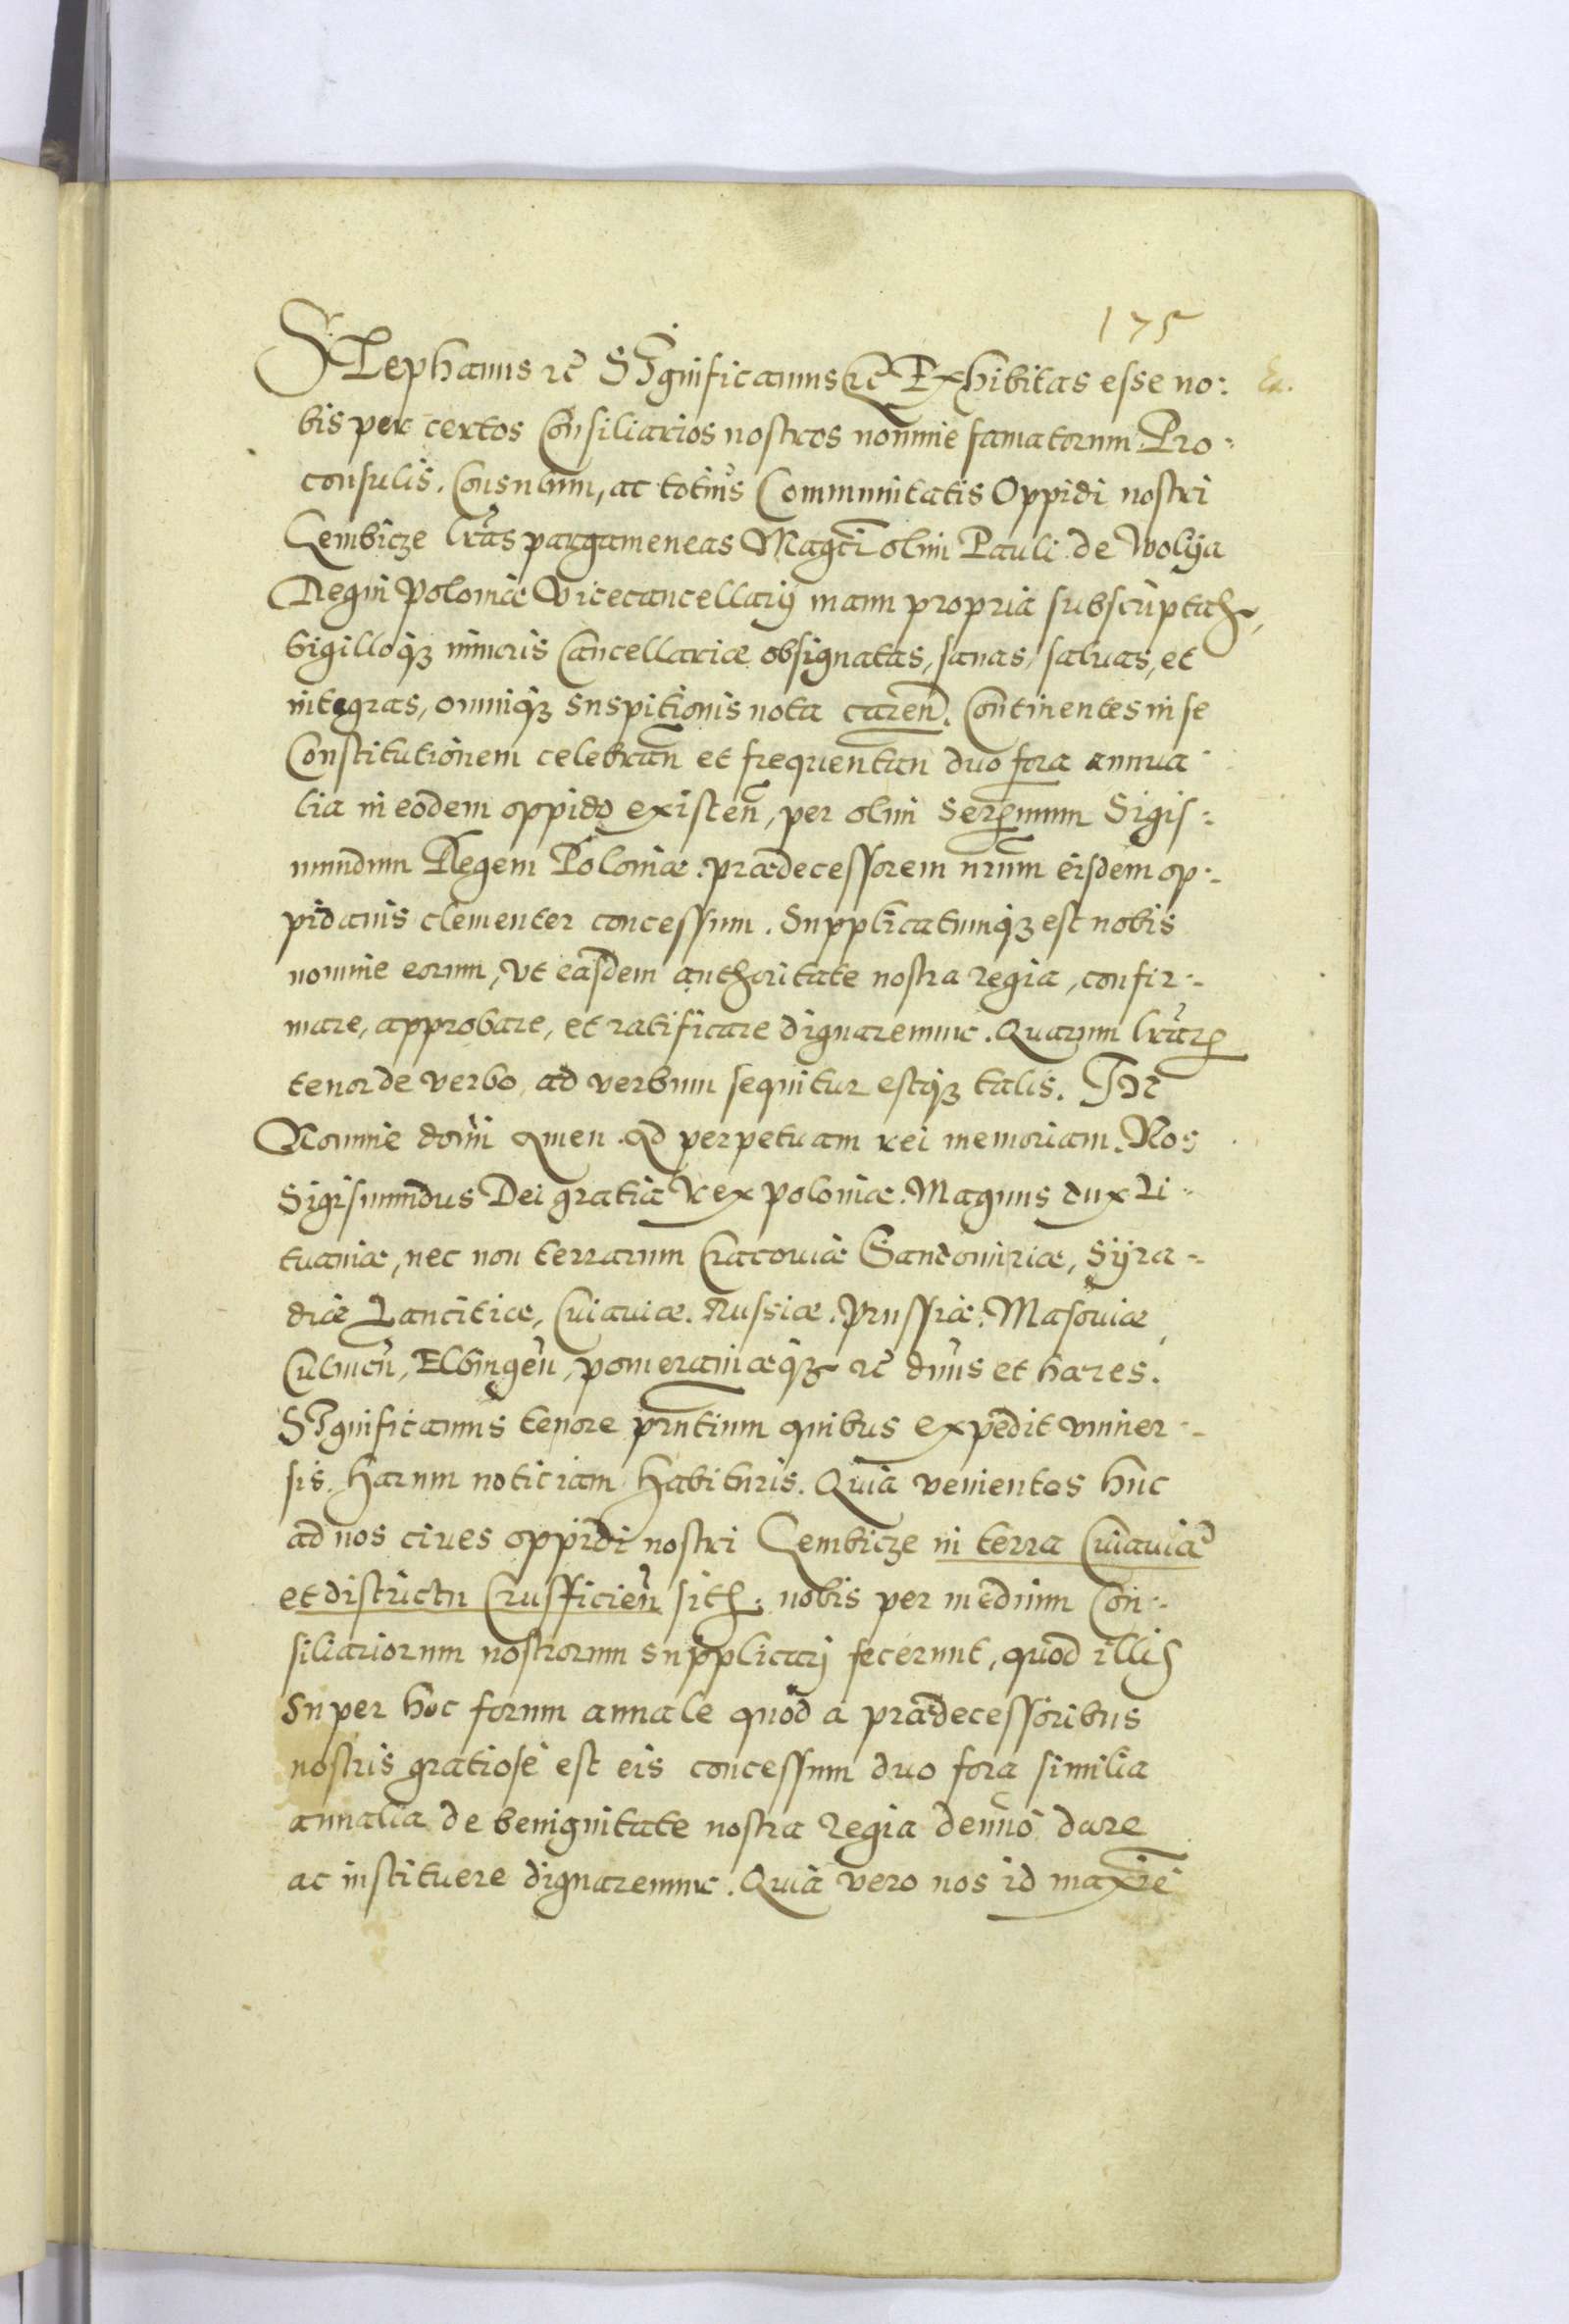 175
Stephanus etc̃ SIgnificamus etc̃ Exhibitas esse no:
bis per certos Consiliarios nostros nomine famatorum Pro:
consulis. Consulum, ac totius Communitatis Oppidi nostri
Gembicze lr̃as pargameneas Magci olim Pauli de Wolija
Regni Poloniæ Vicecancellarij manu propria subscriptas,
Sigilloq3 minoris Cancellariæ obsignatas, sanas, salvas, et
integras, omniq3 suspitionis nota caren̄. Continentes in se
Constitutionem celebran̄ et frequentan̄ duo fora annua
lia in eodem oppido existen̄, per olim Serenmum Sigis:
mundum Regem Poloniæ. prædecessorem nr̃um eisdem op:
pidanis clementer concessum. Supplicatumq3 est nobis
nomine eorum, Vt easdem authoritate nostra regia, confir:
mare, approbare, et ratificare dignaremur. Quarum lr̃arum
tenor de verbo ad verbum sequitur estq3 talis. In
Nomine domi Amen. Ad perpetuam rei memoriam. Nos
Sigismundus Dei gratia Rex Poloniæ. Magnus dux Li:
tvaniæ, nec non terrarum Cracoviæ Sandomiriæ, Syra:
diæ Lanciciæ, Cuiaviæ. Russiæ. Prussiæ. Masoviæ
Culmen̄, Elbingen̄, pomeraniæq3 etc̃ dn̄us et hæres.
SIgnificamus tenore pr̃ntium quibus expedit vniuer:
sis. harum noticiam habituris. Quia venientes huc
ad nos ciues oppidi nostri Gembicze in terra Cuiaviæ
et districtu Crusficien̄ sith: nobis per medium Con:
siliariorum nostrorum supplicarj fecerunt, quod illis
super hoc forum annale quod a prædecessoribus
nostris gratiosè est eis concessum duo fora similia
annalia de benignitate nostra regia denuo dare
ac instituere dignaremur. Quia vero nos id maxie